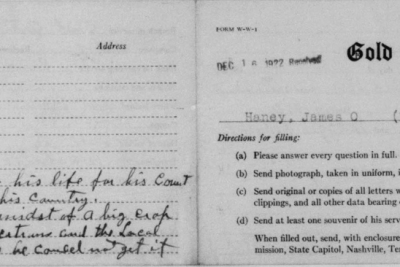 Address
his life for his Count
his Country.
midst of a big crop
and the Local
he counsel not get it
FORM W-W-1
DEC 16 1922 Received
Gold
Haney, James O (
Directions for filling:
(a) Please answer every question in full.
(b) Send photograph, taken in uniform, i
(c) Send original or copies of all letters w
clippings, and all other data bearing
(d) Send at least one souvenir of his serv
When filled out, send, with enclosure
mission, State Capitol, Nashville, Ten